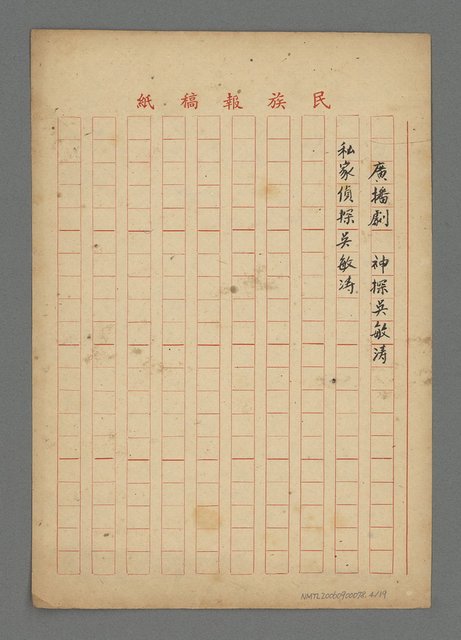 民族報稿紙
廣播劇 神探吳敏濤
私家偵探吳敏濤
NMTL20060900078. 4/19